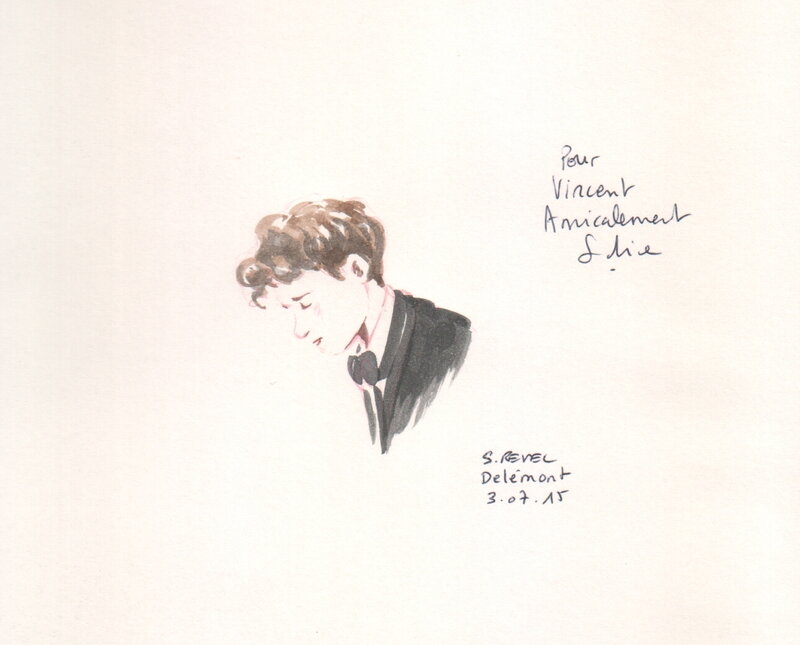 Pour
Vincent
Amicalement
S.REVEL
Delémont
3.07.15